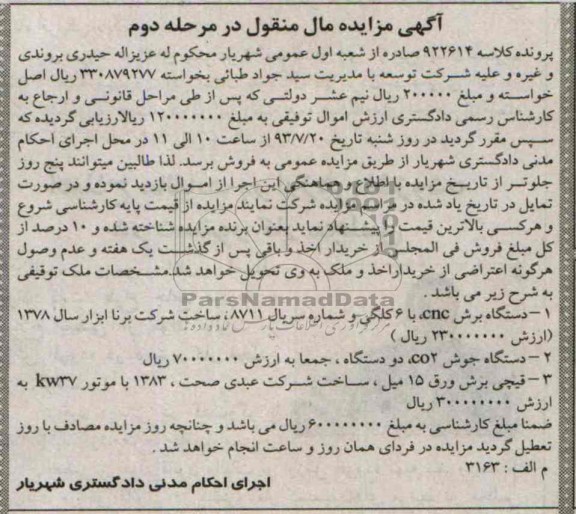 آگهی مزایده مال منقول در مرحله دوم
پرونده کلاسه ۹۲۲۶۱۴ صادره از شعبه اول عمومی شهریار محکوم له عزیزاله حیدری بروندی
و غیره و علیه شرکت توسعه با مدیریت سید جواد طبائی بخواسته ۳۳۰۸۷۹۲۷۷ ریال اصل
خواسته و مبلغ ۲۰۰۰۰۰ ریال نیم عشر دولتی که پس از طی مراحل قانونی و ارجاع به
کارشناس رسمی دادگستری ارزش اموال توقیفی به مبلغ ۱۲۰۰۰۰۰۰۰ ریالارزیابی گردیده که
سپس مقرر گردید در روز شنبه تاریخ ۹۳/۷/۲۰ از ساعت ۱۰ الی ۱۱ در محل اجرای احکام
مدنی دادگستری شهریار از طریق مزایده عمومی به فروش برسد. لذا طالبین میتوانند پنج روز
جلوتر از تاریخ مزایده با اطلاع و هماهنگی این اجرا از اموال بازدید نموده و در صورت
تمایل در تاریخ یاد شده در مراسم مزایده شرکت نمایند مزایده از قیمت پایه کارشناسی شروع
و هرکسی بالاترین قیمت را پیشنهاد نماید بعنوان برنده مزایده شناخته شده و ۱۰ درصد از
کل مبلغ فروش فی المجلس از خریدار اخذ و باقی پس از گذشت یک هفته و عدم وصول
هرگونه اعتراضی از خریداراخذ و ملک به وی تحویل خواهد شد.مشخصات ملک توقیفی
به شرح زیر می باشد .
ParsNamadData
۱-دستگاه برش cnc، با ۶کلگی و شماره سریال ۸۷۱۱، ساخت شرکت برنا ابزار سال ۱۳۷۸
(ارزش ۲۳۰۰۰۰۰۰۰ ریال )
۲- دستگاه جوش co۲، دو دستگاه ، جمعا به ارزش ۷۰۰۰۰۰۰۰ ریال
۳- قیچی برش ورق ۱۵ میل ، ساخت شرکت عبدی صحت ، ۱۳۸۳ با موتور kw۳۷ به
ارزش ۳۰۰۰۰۰۰۰۰ ریال
ضمنا مبلغ کارشناسی به مبلغ ۶۰۰۰۰۰۰۰۰ ریال می باشد و چنانچه روز مزایده مصادف با روز
تعطیل گردید مزایده در فردای همان روز و ساعت انجام خواهد شد .
م الف : ۳۱۶۳
اجرای احکام مدنی دادگستری شهریار